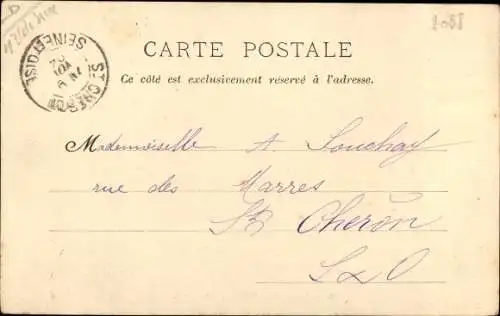 CARTE POSTALE
Ce côté est exclusivement réservé à l'adresse.
ST CHERON
SEINE ET OISE
Mademoiselle A Souchay
rue des Marres
St Cheron
S & O